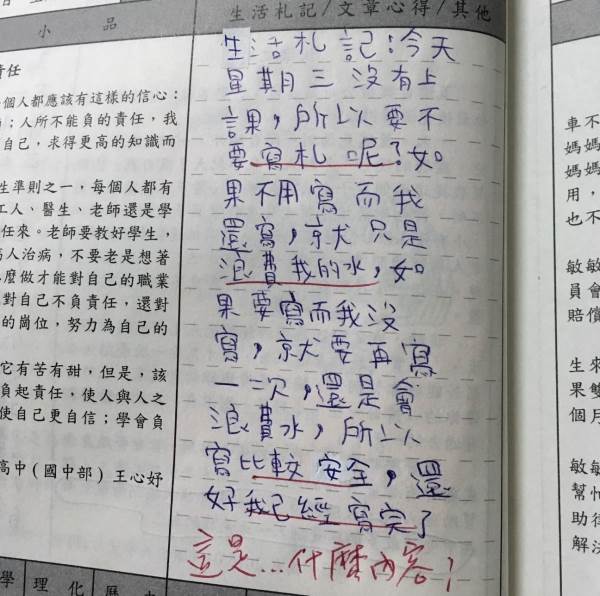 小品
生活札記/文章心得/其他
責任
個人都應該有這樣的信心：
；人所不能負的責任，我
自己，求得更高的知識而
生準則之一，每個人都有
工人、醫生、老師還是學
任來。老師要教好學生，
病人治病，不要老是想著
麼做才能對自己的職業
對自己不負責任，還對
的崗位，努力為自己的
它有苦有甜，但是，該
負起責任，使人與人之
使自己更自信；學會負
高中(國中部) 王心妤
學 理 化 歷
生活札記：今天
星期三沒有上
課，所以要不
要寫札呢？如
果不用寫而我
還寫，就只是
浪費我的水，如
果要寫而我沒
寫，就要再寫
一次，還是會
浪費水，所以
寫比較安全，還
好我已經寫完了
這是...什麼內容！
車不
媽媽
媽媽
用，
也不
敏敏
員會
賠償
生來
果雙
個月
敏敏
幫忙
助徑
解決